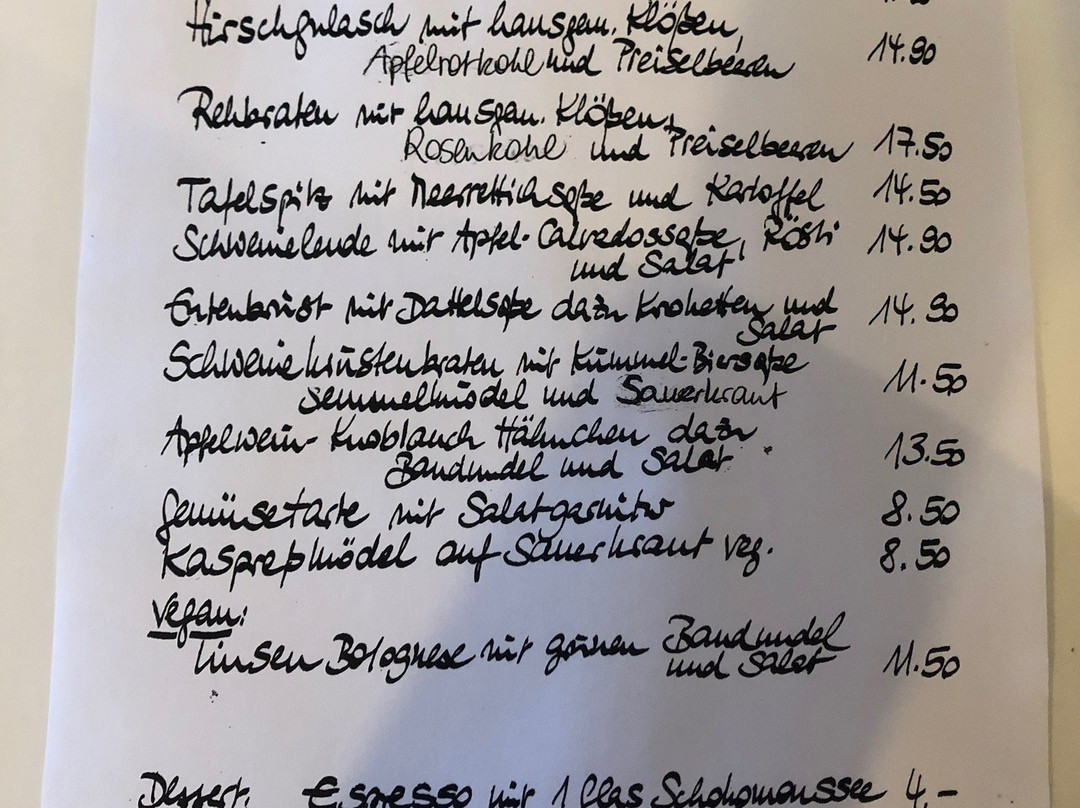 Hirschgulasch mit hausgem. Klößen,
Apfelrotkohl und Preiselbeeren 14.90
Rehbraten mit hausgem. Klößen,
Rosenkohl und Preiselbeeren 17.50
Tafelspitz mit Meerrettichsoße und Kartoffel 14.50
Schweinelende mit Apfel-Calvadossoße, Rösti 14.90
und Salat
Entenbrust mit Dattelsoße dazu Kroketten und 14.90
Salat
Schweinekrustenbraten mit Kümmel-Biersoße
Semmelknödel und Sauerkraut 11.50
Apfelwein-Knoblauch Hähnchen dazu
Bandnudel und Salat 13.50
Gemüsetarte mit Salatgarnitur 8.50
Kaspreßknödel auf Sauerkraut veg. 8.50
vegan:
Linsen Bolognese mit grünen Bandnudel
und Salat 11.50
Dessert. Espresso mit 1 Glas Schokomoussee 4,-